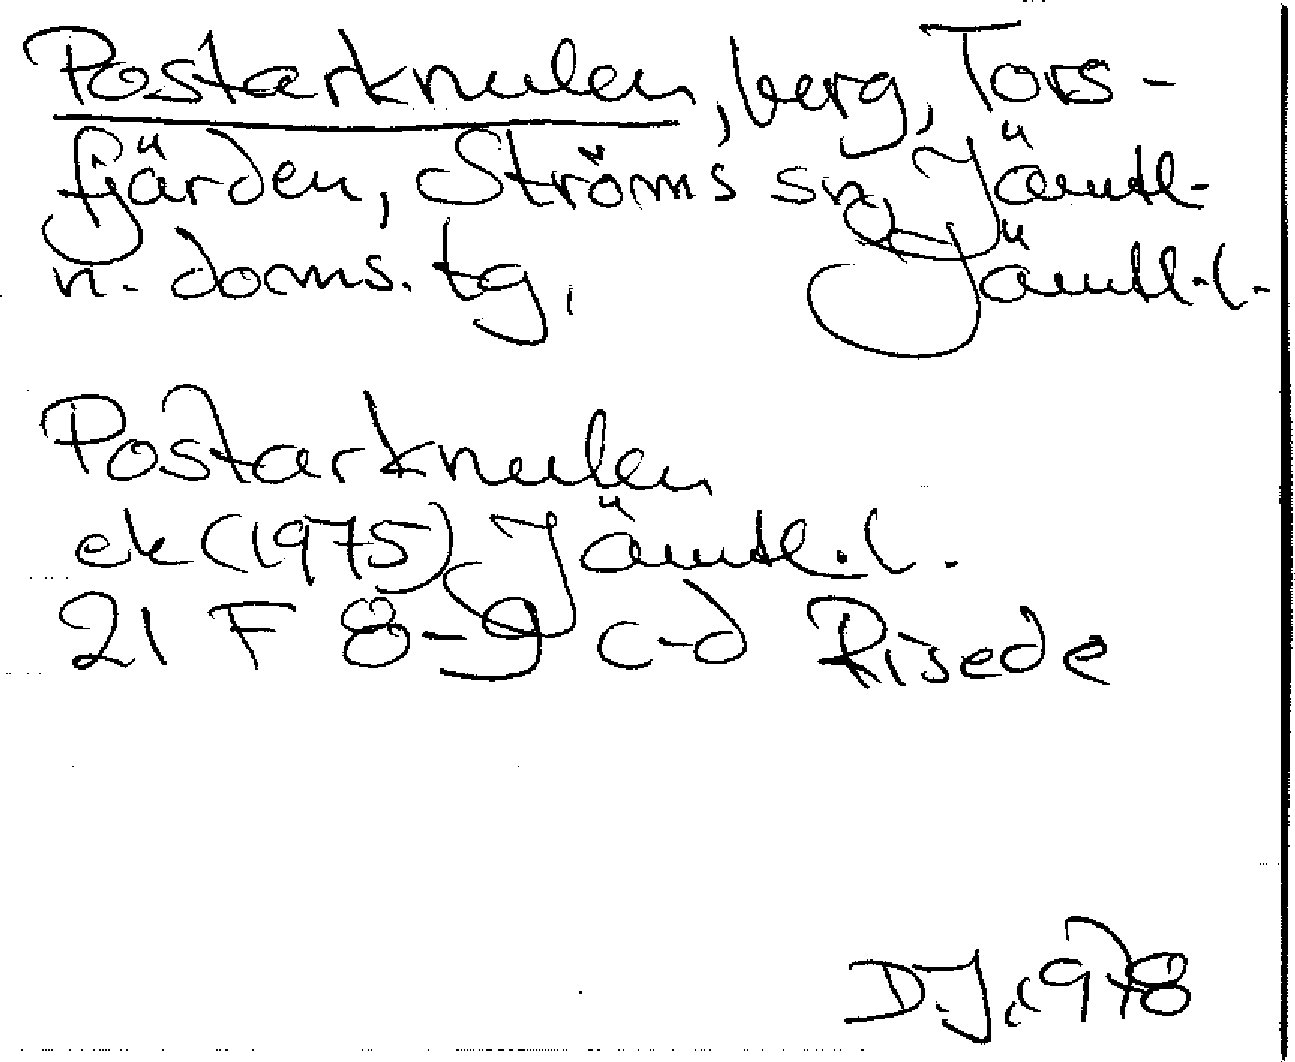 Postarknulen, berg, Tors-
fjärden, Ströms sn, Jämtl.
n. doms. tg, Jämtl. l.
Postarknulen
ek (1975) Jämtl. l.
21 F 8-9 c-d Risede
D.J. 1978